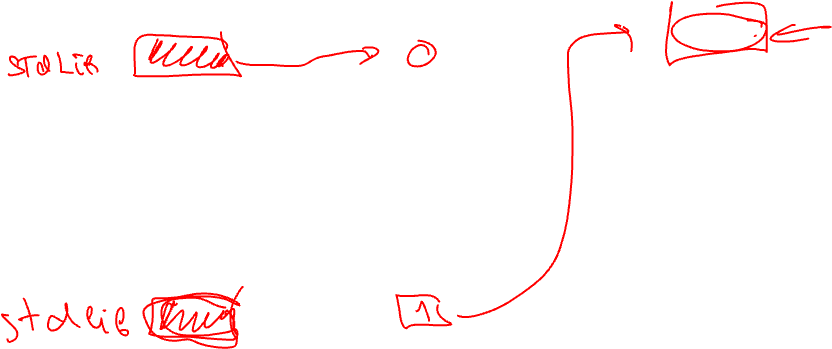 stdLib
stdlib
1